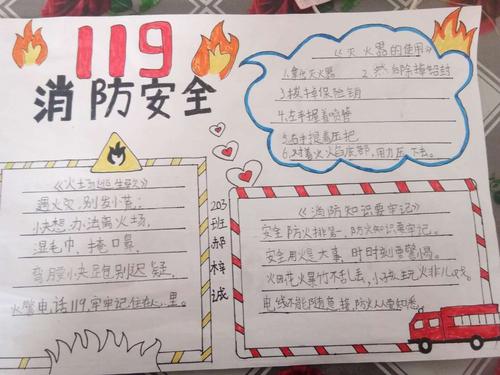 119
消防安全
《灭火器的使用》
1.拿出灭火器 2.然后除掉铅封
3.拔掉保险销
4.左手握着喷管
5.右手提着压把
6.对着火焰底部,用力压下去。
遇火灾,别发小慌;
快想办法离火场,
湿毛巾,掩口鼻,
弯腰小步包别迟疑,
火警电话119,牢牢记住在心里。
203班郝梓诚
《消防知识要牢记》
安全防火排第一,防火知识要牢记。
安全用火是大事,时时刻刻要警惕。
火田花火暴竹不乱丢,小孩玩火非儿戏。
电线不能随意接,防火人人要知悉。